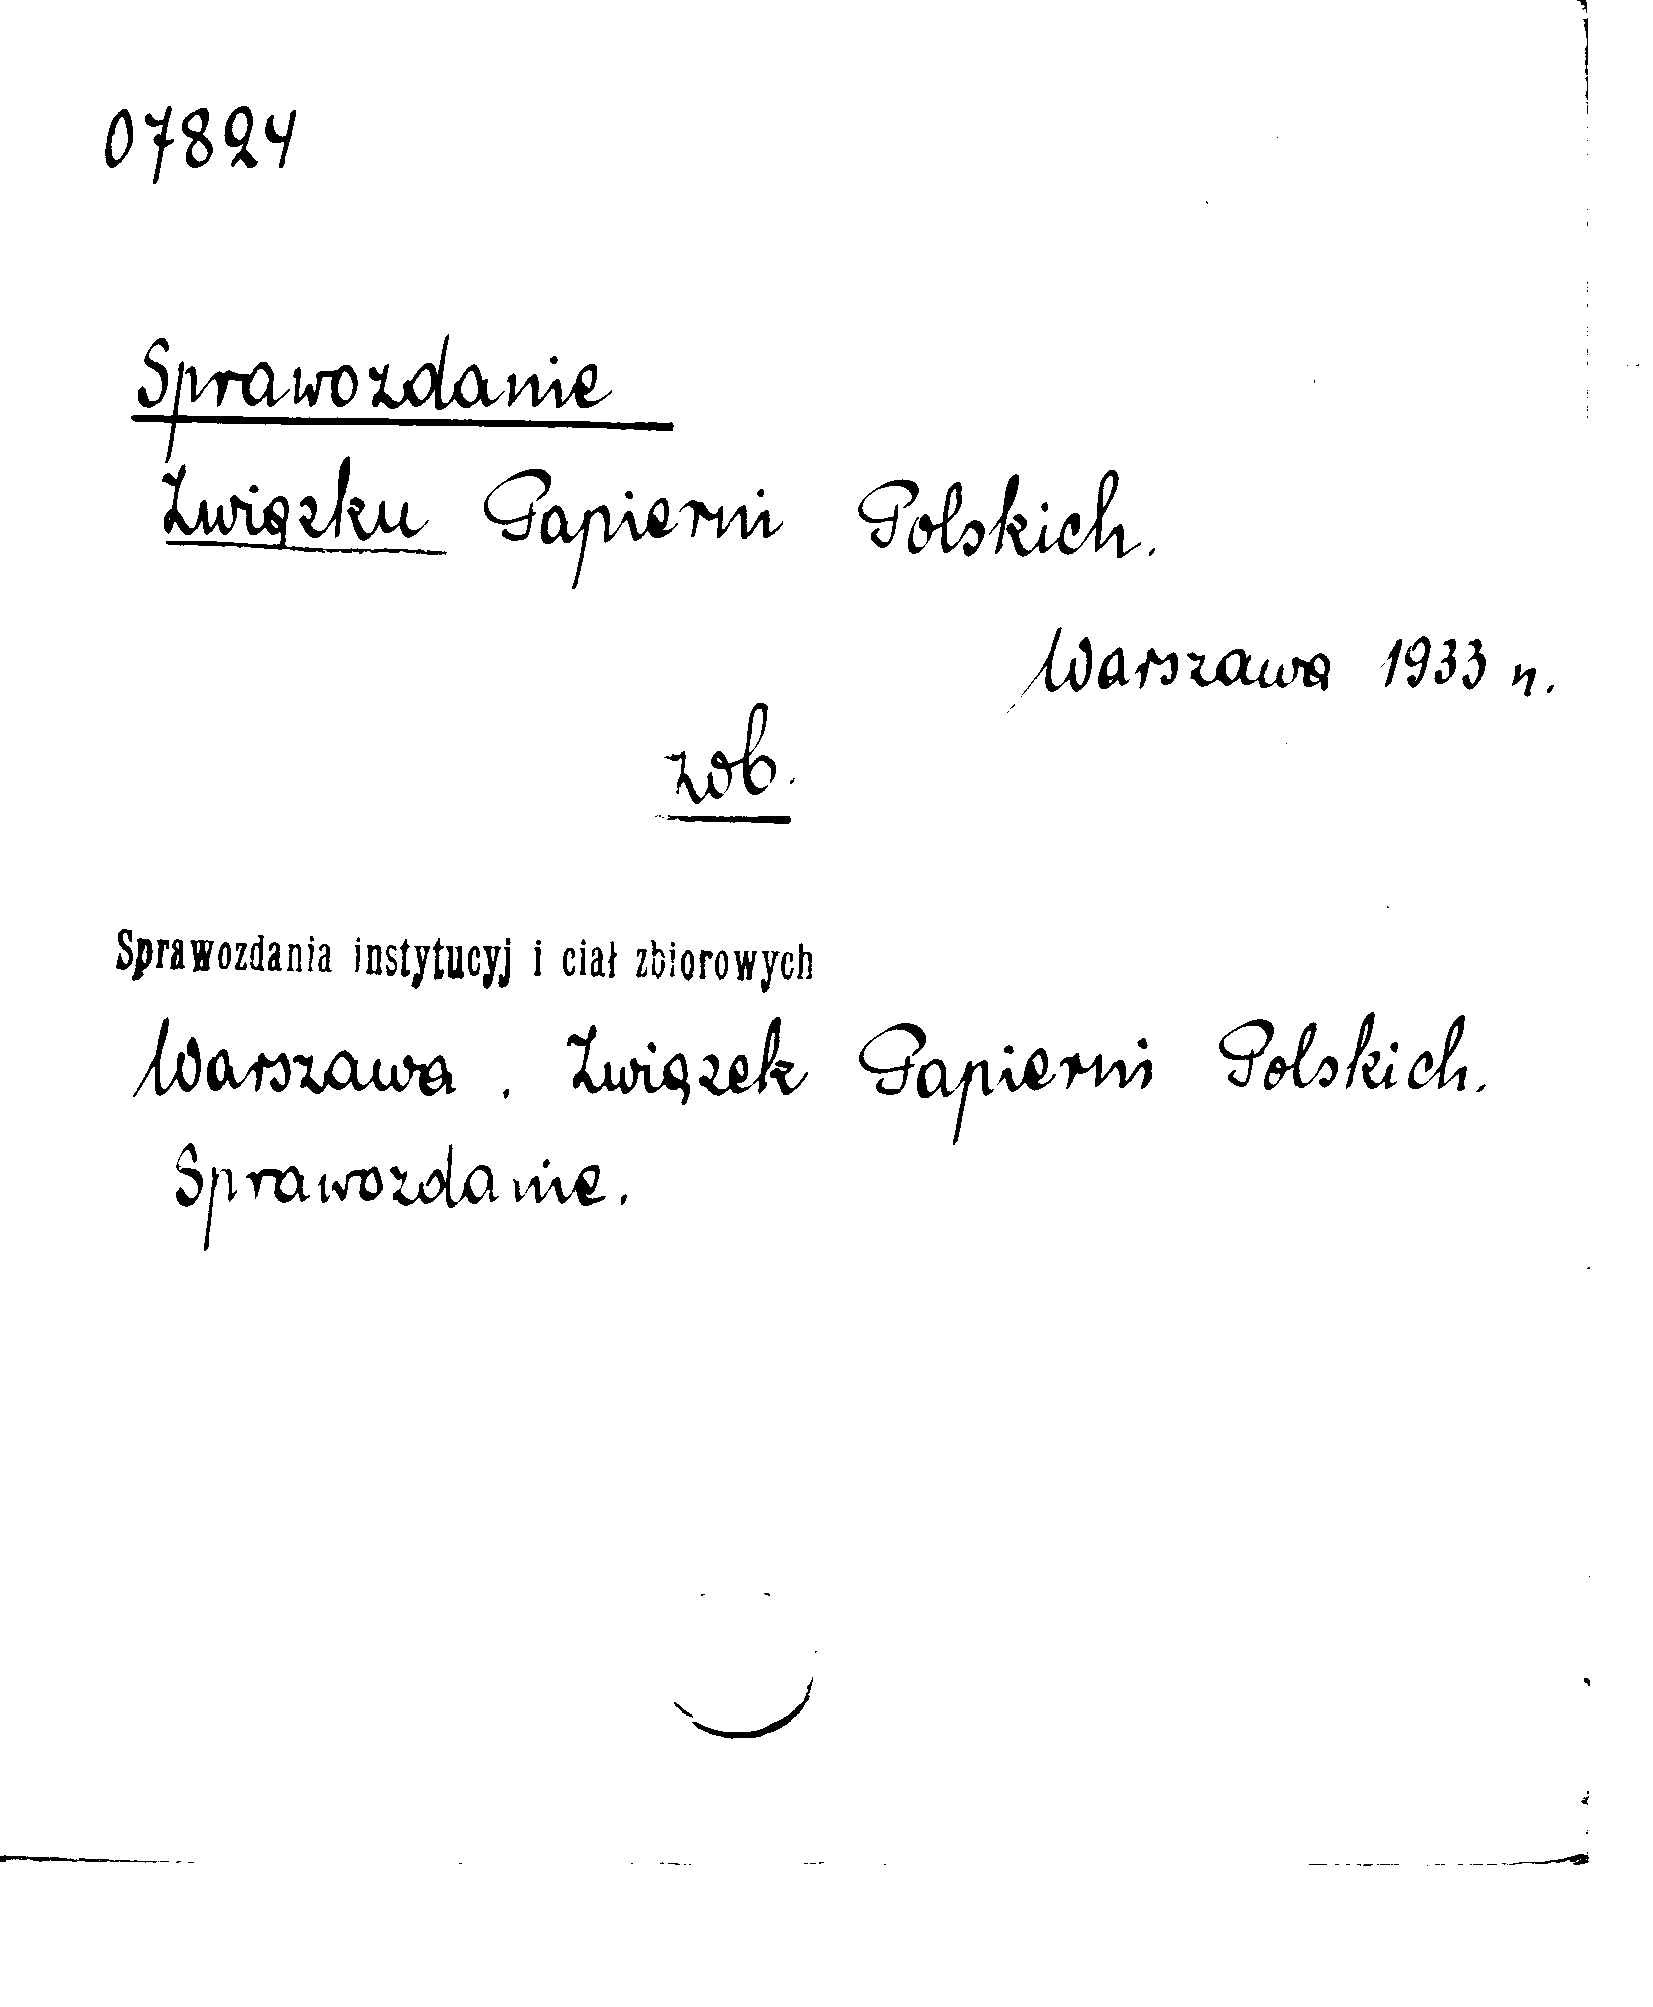 07824
Sprawozdanie
Związku Papierni Polskich.
Warszawa 1933 n.
zob.
Sprawozdania instytucyj i ciał zbiorowych
Warszawa. Związek Papierni Polskich.
Sprawozdanie.